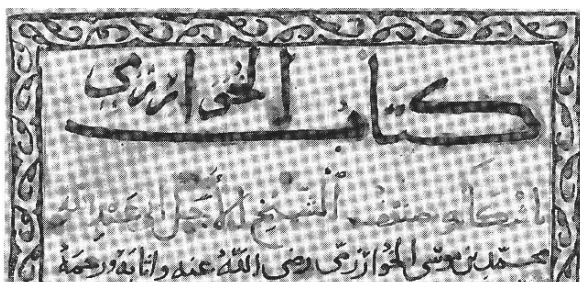 كتاب الخوارزمي
الشيخ الأجل ابو عبد الله
محمّد بن موسى الخوارزمى رضى الله عنه واثابه ورحمه